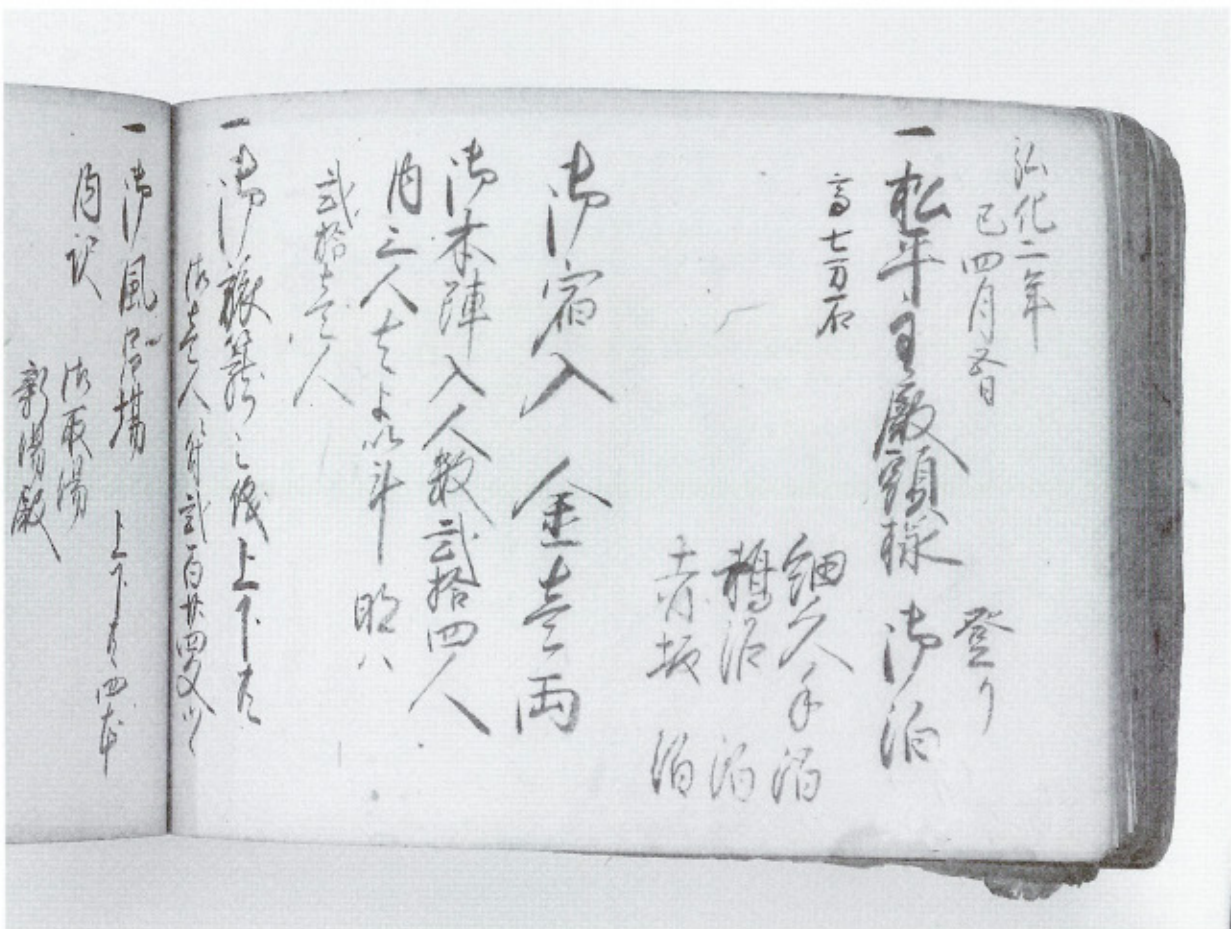 弘化二年
巳四月五日
登り
一松平主殿頭様 御泊
高七万石
細久手泊
鵜沼泊
赤坂泊
御宿入 金壱両
御本陣入人数弐拾四人
内三人
弐拾壱人
一御旅籠之儀上下共
御壱人ニ付弐百廿四文ツヽ
一御風呂場 上下共四本
内訳
御取湯
新湯殿